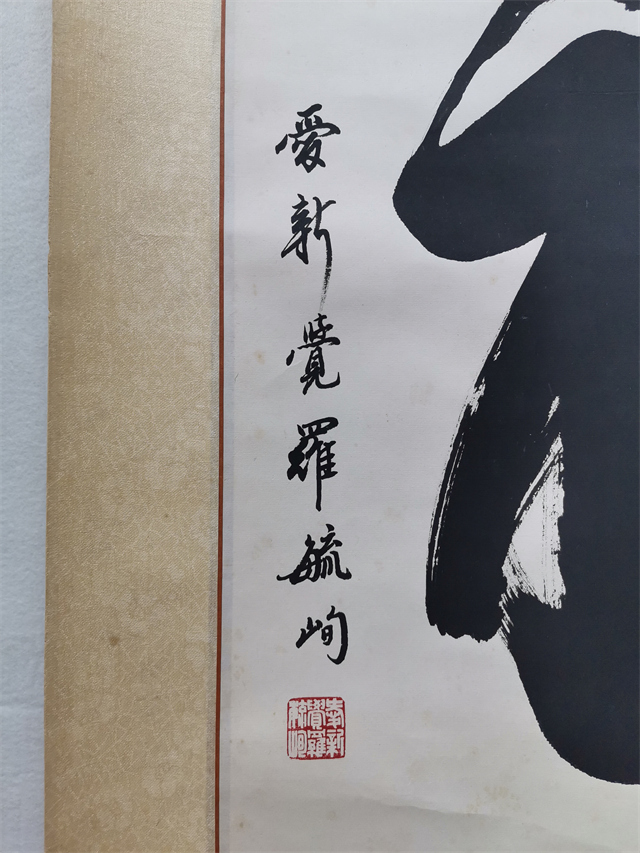 愛新覺羅毓峋
愛新
覺羅
毓峋